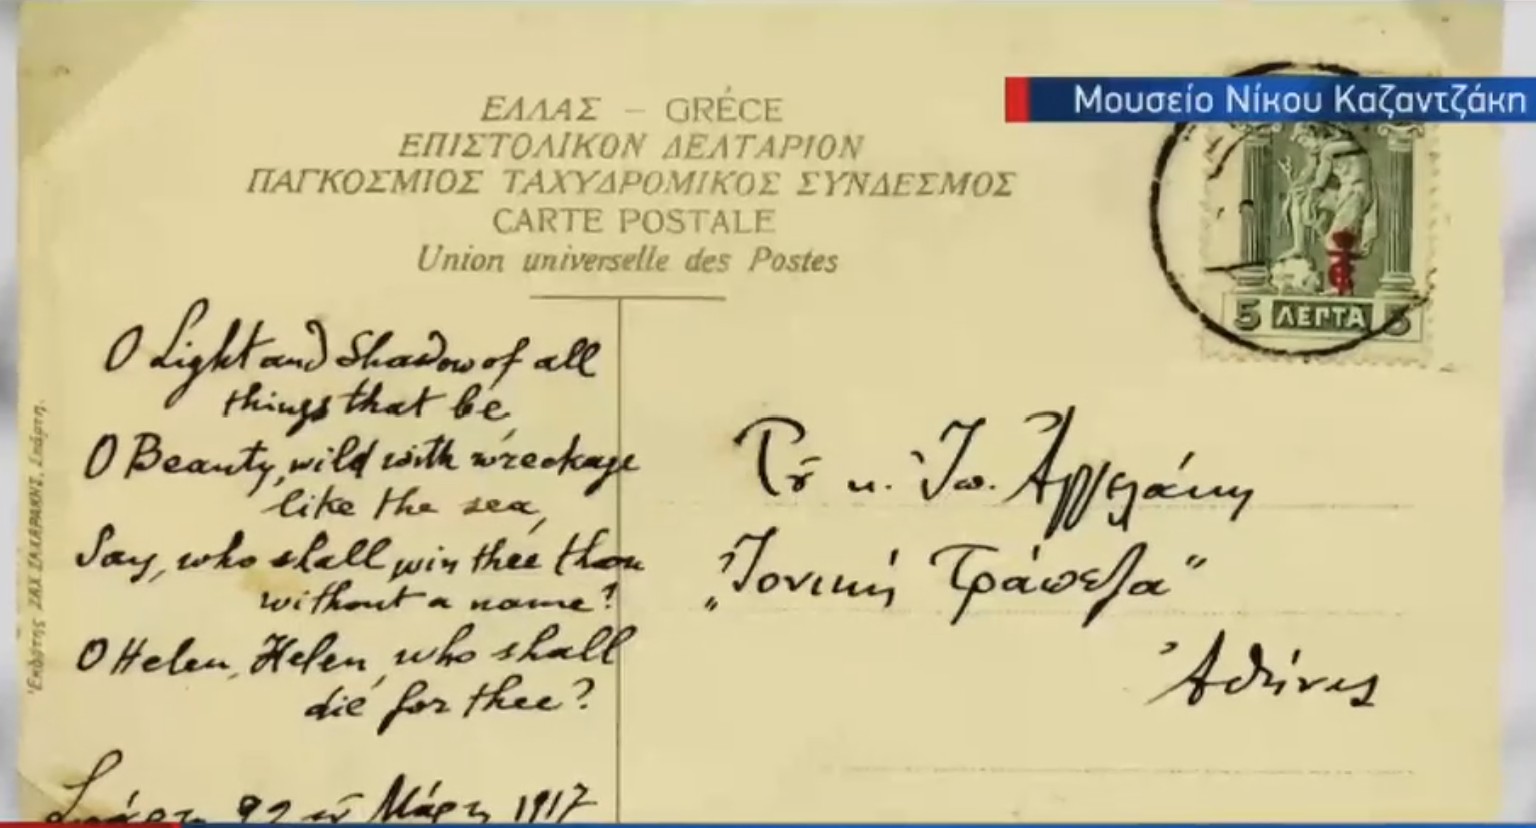 Μουσείο Νίκου Καζαντζάκη
ΕΛΛΑΣ – GRÉCE
ΕΠΙΣΤΟΛΙΚΟΝ ΔΕΛΤΑΡΙΟΝ
ΠΑΓΚΟΣΜΙΟΣ ΤΑΧΥΔΡΟΜΙΚΟΣ ΣΥΝΔΕΣΜΟΣ
CARTE POSTALE
Union universelle des Postes
5 ΛΕΠΤΑ 5
O Light and Shadow of all
things that be,
O Beauty, wild with wreckage
like the sea,
Say, who shall win thee thou
without a name?
O Helen, Helen, who shall
die for thee?
Σπάρτη 22 Μάρτη 1917
κ. Ἰω. Ἀγγελάκη
„Ἰονική Τράπεζα“
Ἀθήνες
Ἐκδότης ΖΑΧ ΖΑΧΑΡΑΚΗΣ, Σπάρτη.